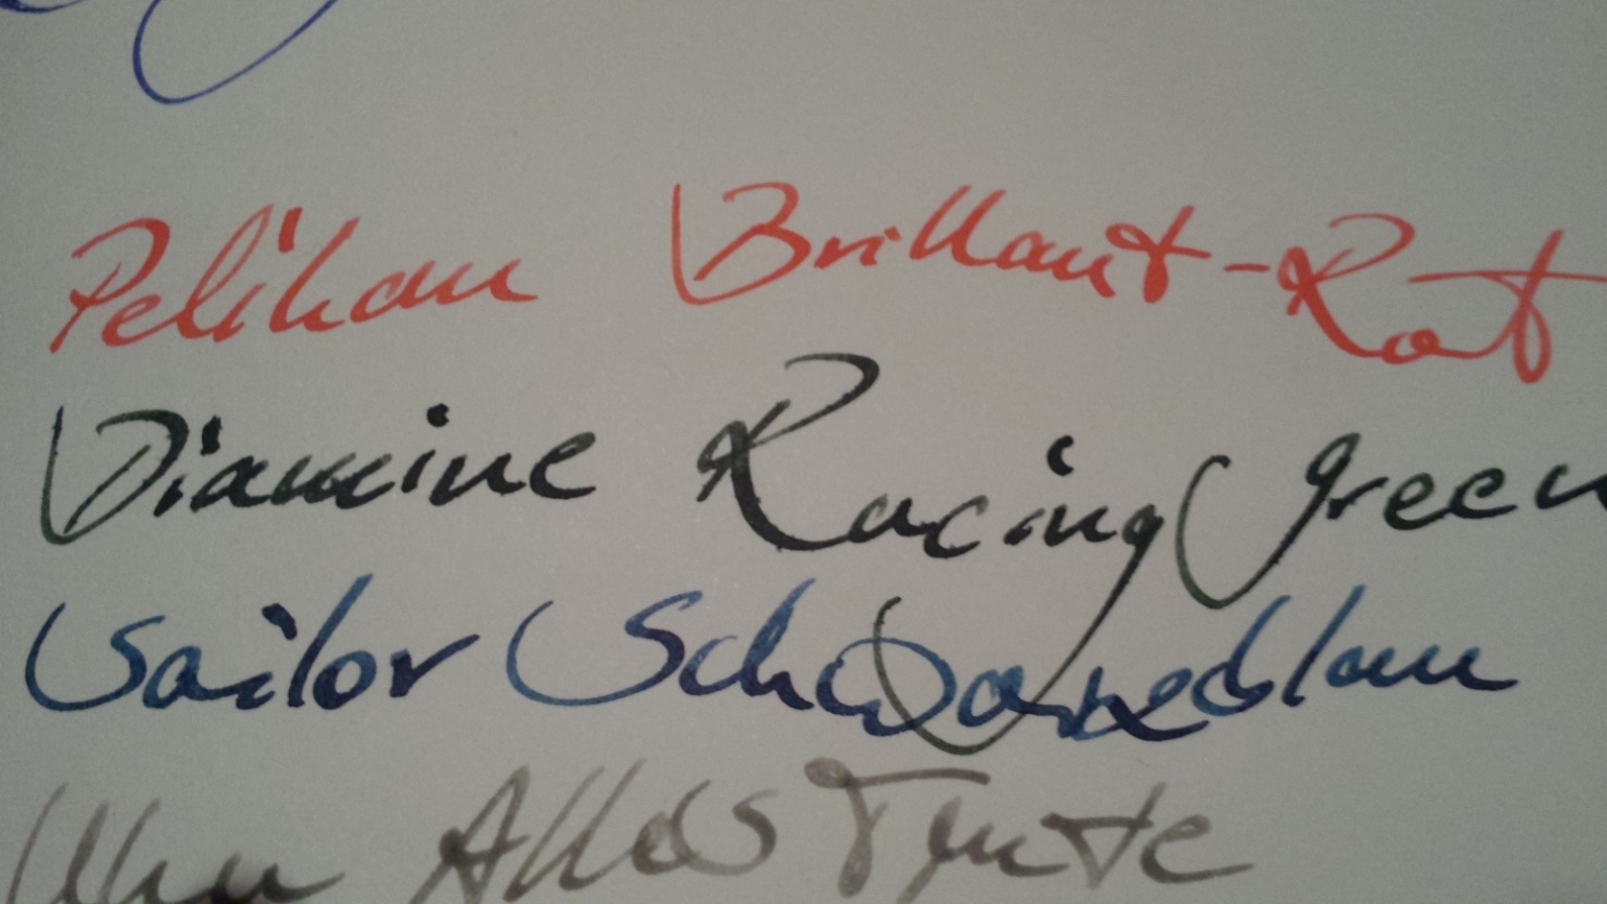 Pelikan Brillant-Rot
Diamine Racing green
Sailor Schwarzblau
Alles Tinte